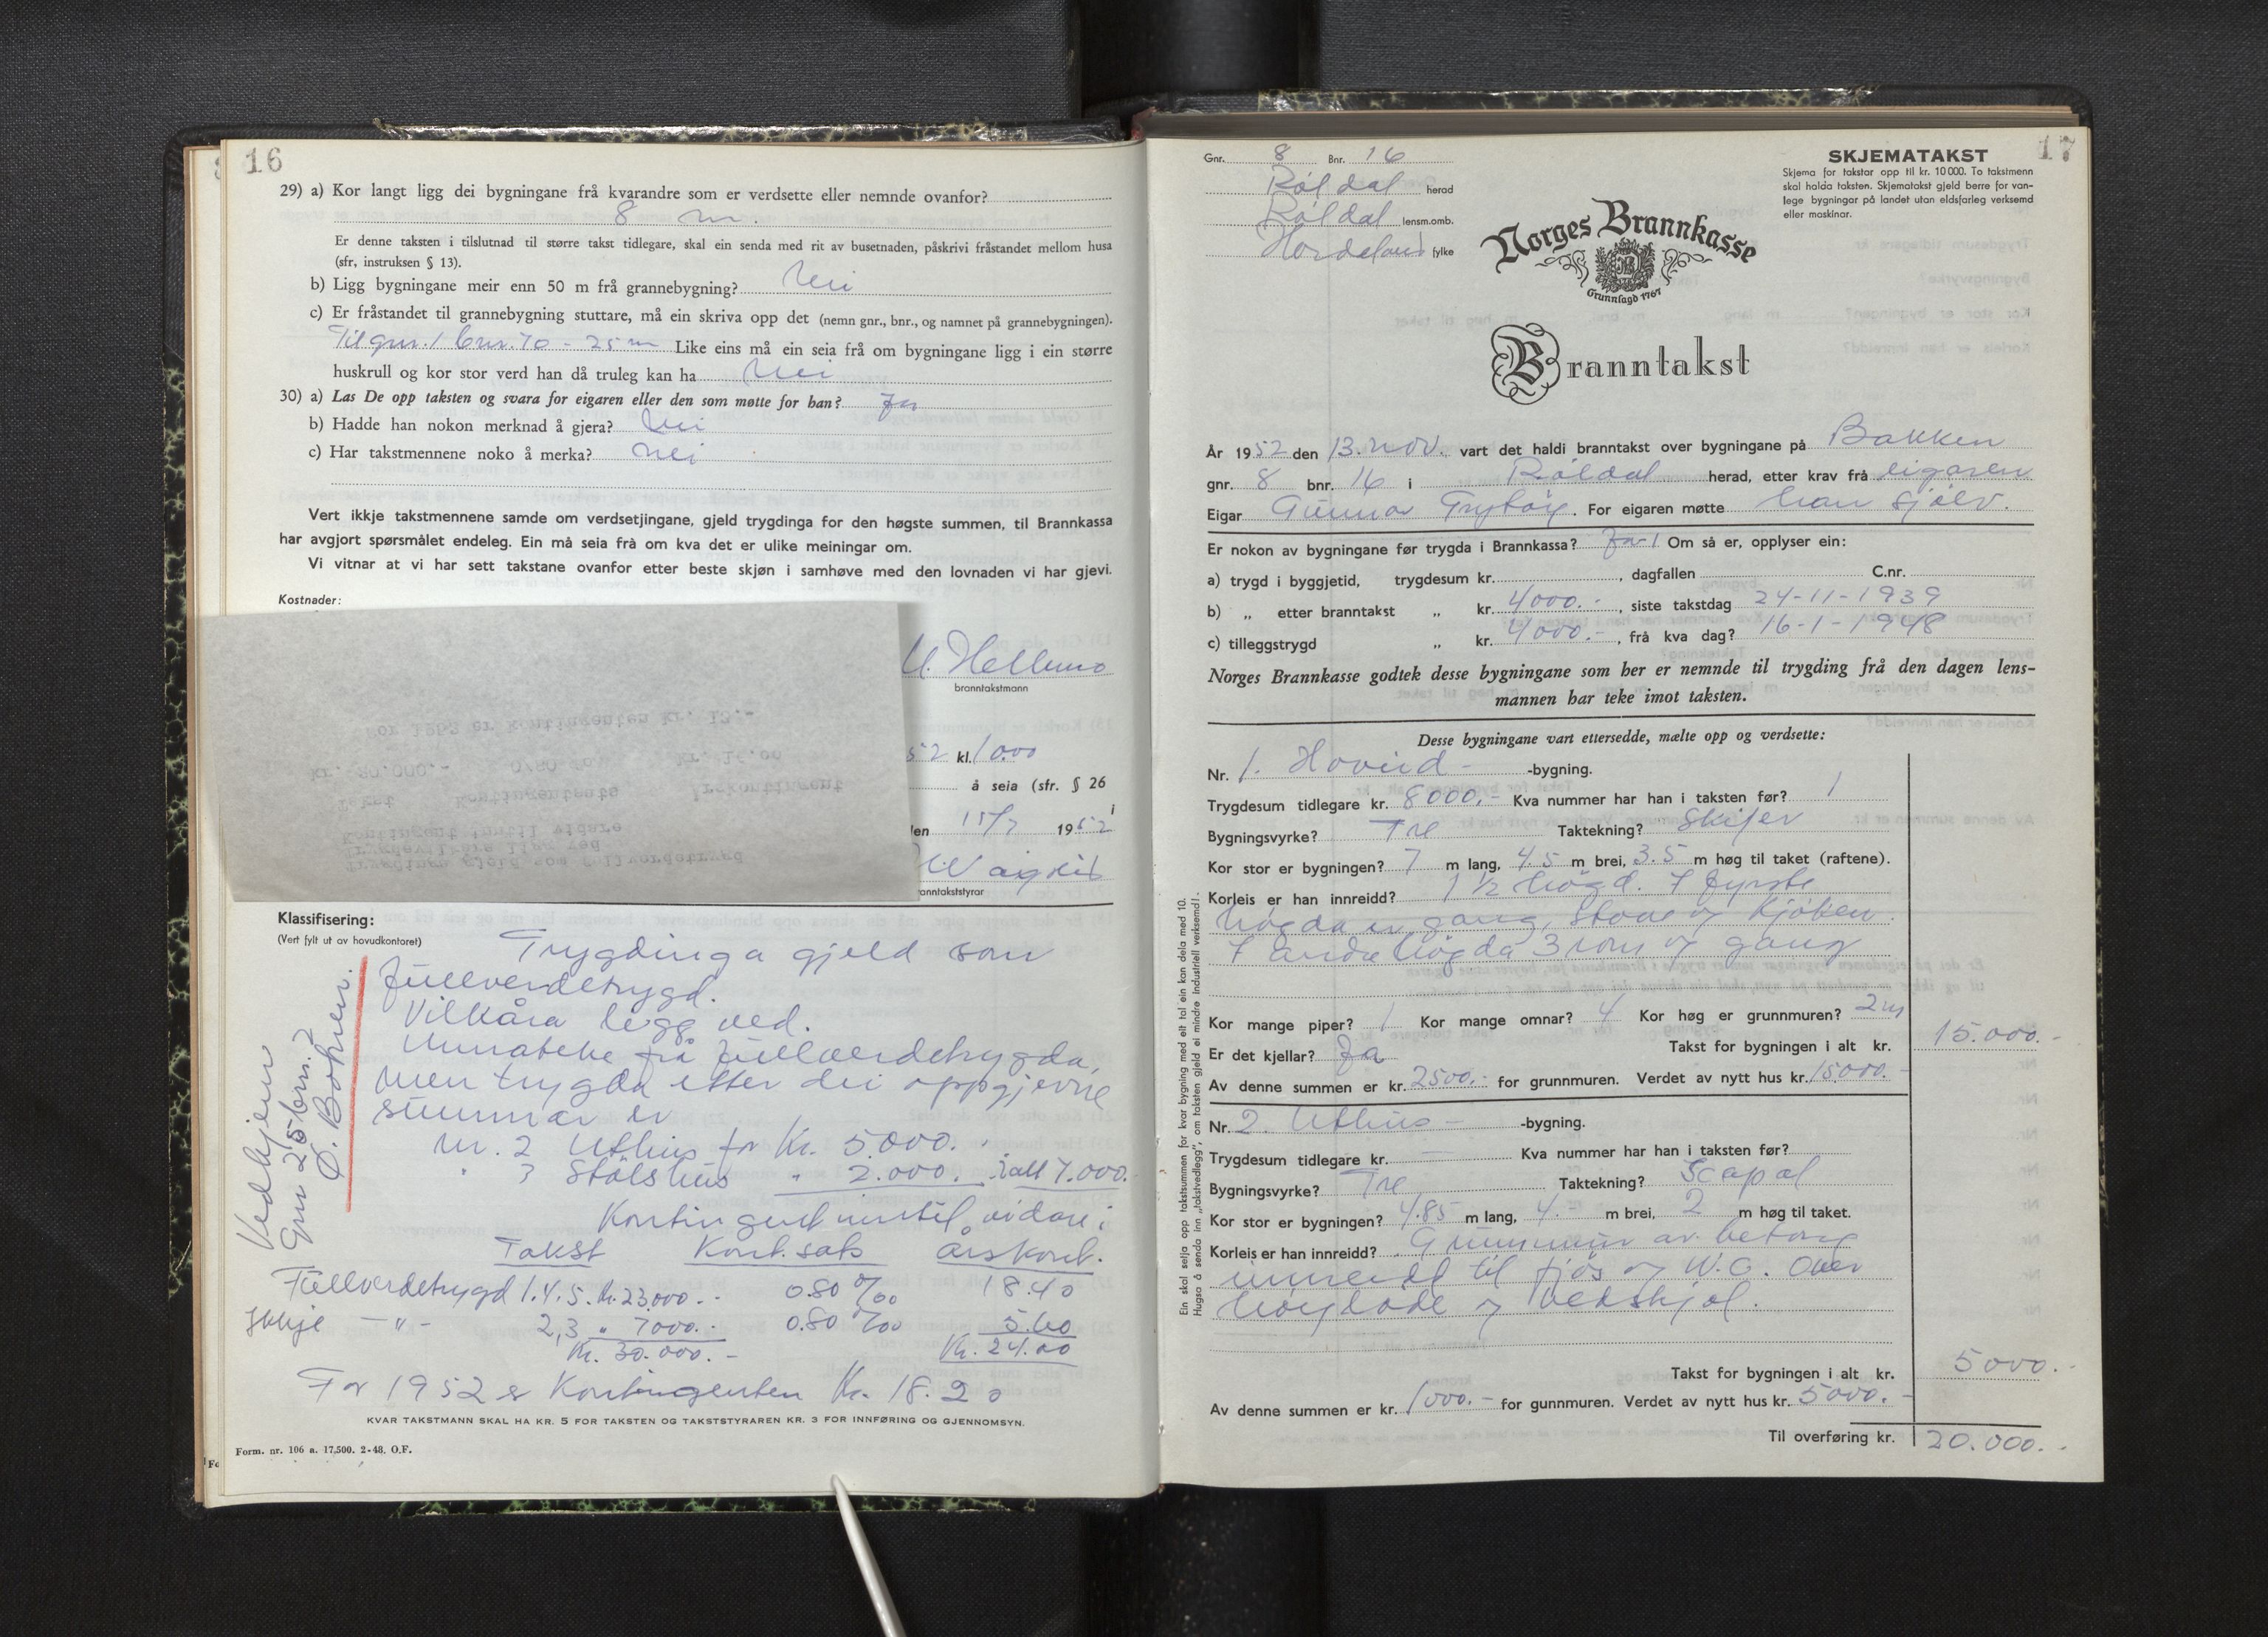 16
29) a) Kor langt ligg dei bygningane frå kvarandre som er verdsette eller nemnde ovanfor?
8 m.
Er denne taksten i tilslutnad til større takst tidlegare, skal ein senda med rit av busetnaden, påskrivi fråstandet mellom husa
(sfr, instruksen § 13).
b) Ligg bygningane meir enn 50 m frå grannebygning? Nei
c) Er fråstandet til grannebygning stuttare, må ein skriva opp det (nemn gnr., bnr., og namnet på grannebygningen).
Til gnr. 1 bnr. 70 - 25 m Like eins må ein seia frå om bygningane ligg i ein større
huskrull og kor stor verd han då truleg kan ha Nei
30) a) Las De opp taksten og svara for eigaren eller den som møtte for han? Ja
b) Hadde han nokon merknad å gjera? Nei
c) Har takstmennene noko å merka? Nei
Vert ikkje takstmennene samde om verdsetjingane, gjeld trygdinga for den høgste summen, til Brannkassa
har avgjort spørsmålet endeleg. Ein må seia frå om kva det er ulike meiningar om.
Vi vitnar at vi har sett takstane ovanfor etter beste skjøn i samhøve med den lovnaden vi har gjevi.
Kostnader:
branntakstmann
52 kl. 1000
å seia (sfr. § 26
i
len 15/7 1952
anntakststyrar
Klassifisering:
(Vert fylt ut av hovudkontoret)
Trygdinga gjeld som
fullverdetrygd.
Vilkåra ligg ved.
Unnateke frå fullverdetrygda,
men trygda etter dei oppgjevne
summar er
Nr. 2 Uthus for Kr. 5.000.
" 3 Stølshus " 2.000. ialt 7.000.
Kontingent inntil vidare:
Takst Kont.sats Årskont.
Fullverdetrygd 1.4.5. Kr. 23.000.- 0.80 ‰ 18.40
Ikkje -"- 2,3 " 7000.- 0.80 ‰ 5.60
Kr. 30.000.- Kr. 24.00
For 1952 er Kontingenten Kr. 18.20
KVAR TAKSTMANN SKAL HA KR. 5 FOR TAKSTEN OG TAKSTSTYRAREN KR. 3 FOR INNFØRING OG GJENNOMSYN.
Form. nr. 106 a. 17.500. 2-48. O.F.
17
Gnr. 8 Bnr. 16
Røldal herad
Røldal lensm.omb.
Hordaland fylke
SKJEMATAKST
Skjema for takstar opp til kr. 10 000. To takstmenn
skal halda taksten. Skjematakst gjeld berre for van-
lege bygningar på landet utan eldsfarleg verksemd
eller maskinar.
Norges Brannkasse
Grunnlagd 1767
Branntakst
År 1952 den 13. nov. vart det haldi branntakst over bygningane på Bakken
gnr. 8 bnr. 16 i Røldal herad, etter krav frå eigaren
Eigar Gunnar . For eigaren møtte han sjølv.
Er nokon av bygningane før trygda i Brannkassa? Ja 1 Om så er, opplyser ein:
a) trygd i byggjetid, trygdesum kr. , dagfallen C.nr.
b) „ etter branntakst „ kr. 4000.- , siste takstdag 24-11-1939
c) tilleggstrygd „ kr. 4000.- , frå kva dag? 16-1-1948
Norges Brannkasse godtek desse bygningane som her er nemnde til trygding frå den dagen lens-
mannen har teke imot taksten.
Desse bygningane vart ettersedde, mælte opp og verdsette:
Nr. 1. Hovud- -bygning.
Trygdesum tidlegare kr. 8000.- Kva nummer har han i taksten før? 1
Bygningsvyrke? Tre Taktekning? Skifer
Kor stor er bygningen? 7 m lang, 4.5 m brei, 3.5 m høg til taket (raftene).
Korleis er han innreidd? 1 ½ høgd. I fyrste
høgda er gang, stove og kjøken.
I andre høgda 3 rom og gang
Kor mange piper? 1 Kor mange omnar? 4 Kor høg er grunnmuren? 2 m
Er det kjellar? Ja Takst for bygningen i alt kr. 15.000.-
Av denne summen er kr. 2500.- for grunnmuren. Verdet av nytt hus kr. 15000.-
Nr. 2. Uthus- -bygning.
Trygdesum tidlegare kr. — Kva nummer har han i taksten før?
Bygningsvyrke? Tre Taktekning? Scapal
Kor stor er bygningen? 4.85 m lang, 4.- m brei, 2 m høg til taket.
Korleis er han innreidd? Grunnmur av betong
innreidd til fjøs og W.C. Over
høyløde og vedskjol.
Takst for bygningen i alt kr. 5000.-
Av denne summen er kr. 1000.- for gunnmuren. Verdet av nytt hus kr. 5000.-
Til overføring kr. 20.000.-
Ein skal setja opp takstsummen for kvar bygning med eit tal ein kan dela med 10.
Hugsa å senda inn „takstvedlegg", om taksten gjeld ei mindre industriell verksemd!